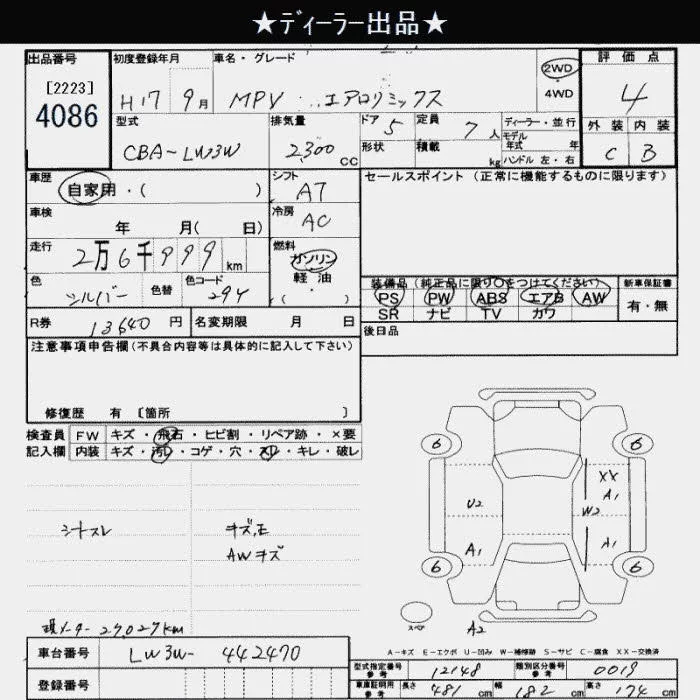 ★ディーラー出品★
出品番号
[2223]
4086
初度登録年月
H17 9月
車名・グレード
MPV エアロリミックス
2WD
・
4WD
評価点
4
型式
CBA-LW3W
排気量
2300 CC
ドア 5
形状
定員 7人
積載 kg
ディーラー・並行
モデル年式 年
ハンドル 左・右
外装 内装
C B
車歴
自家用・( )
シフト
AT
セールスポイント (正常に機能するものに限ります)
車検
年 月( 日)
冷房
AC
走行
2万6千999 km
燃料
ガソリン
軽油
( )
色
シルバー
色替
色コード
29Y
装備品 (純正品に限り○をつけてください)
PS PW ABS エアB AW
SR ナビ TV カワ
新車保証書
有・無
R券 13640 円
名変期限 月 日
後日品
注意事項申告欄(不具合内容等は具体的に記入して下さい)
修復歴 有 [箇所 ]
検査員
記入欄
FW キズ・飛石・ヒビ割・リペア跡・×要
内装 キズ・汚れ・コゲ・穴・スレ・キレ・破レ
シートスレ
キズ,E
AWキズ
現メーター27,027km
6 6
XX
U2 A1
W2
A1 A1
6 6
スペア
A2
A-キズ E-エクボ U-凹み W-補修跡 S-サビ C-腐食 XX-交換済
車台番号 LW3W-442470
登録番号
型式指定番号 参考 12148
類別区分番号 参考 0019
車庫証明用 参考 長さ 481 cm 幅 182 cm 高さ 174 cm